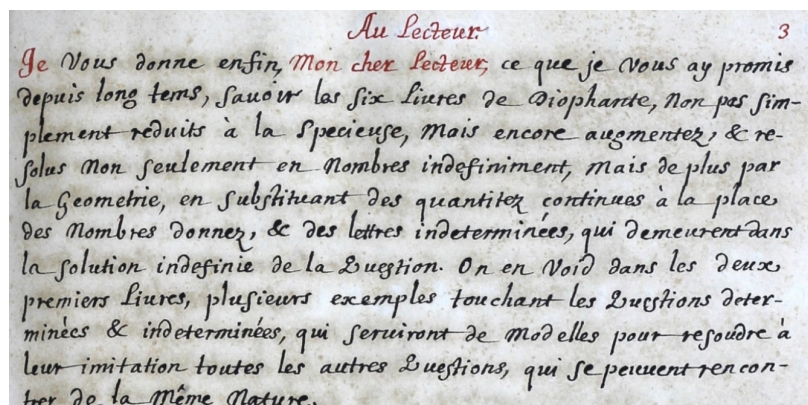 Au Lecteur. 3
Je Vous donne enfin, Mon cher Lecteur, ce que je Vous ay promis
depuis long tems, Savoir les Six Livres de Diophante, Non pas Sim-
plement reduits à la Specieuse, Mais encore augmentez, & re-
solus Non Seulement en Nombres indefiniment, Mais de plus par
la Geometrie, en Substituant des quantitez continues à la place
des Nombres donnez, & des lettres indeterminées, qui demeurent dans
la Solution indefinie de la Question. On en Void dans les deux
premiers Liures, plusieurs exemples touchant les Questions deter-
minées & indeterminées, qui Seruiront de Modelles pour resoudre à
leur imitation toutes les autres Questions, qui Se peuuent rencon-
trer de la Même Nature.